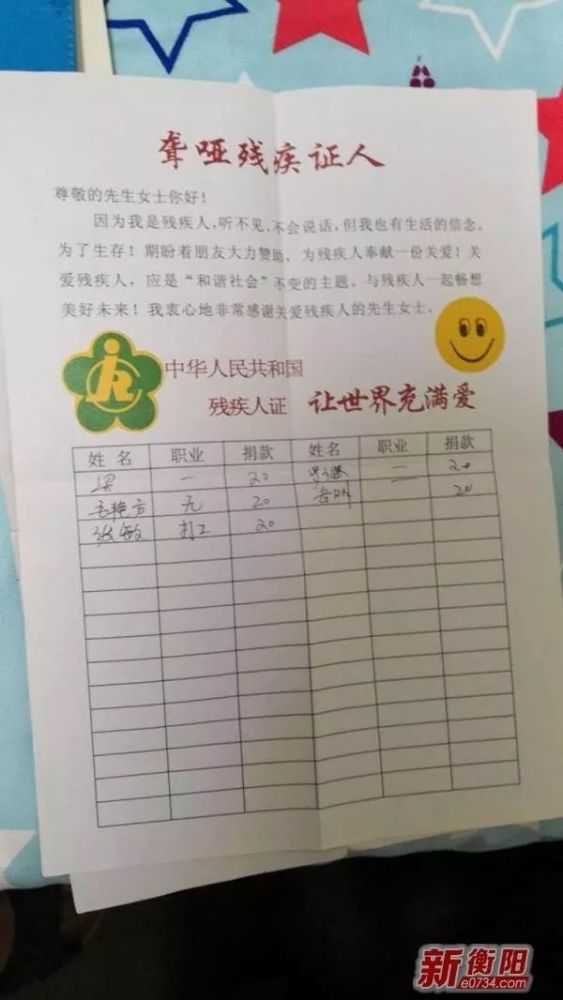 聋哑残疾证人
尊敬的先生女士你好！
因为我是残疾人，听不见、不会说话，但我也有生活的信念。
为了生存！期盼着朋友大力赞助，为残疾人奉献一份关爱！关
爱残疾人，应是“和谐社会”不变的主题，与残疾人一起畅想
美好未来！我衷心地非常感谢关爱残疾人的先生女士。
中华人民共和国
残疾人证 让世界充满爱
姓名 职业 捐款 姓名 职业 捐款
一 20 二 20
毛艳方 无 20 20
张敏 打工 20
新衡阳
e0734.com